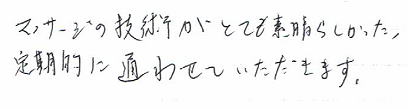 マッサージの技術がとても素晴らしかった、
定期的に通わせていただきます。